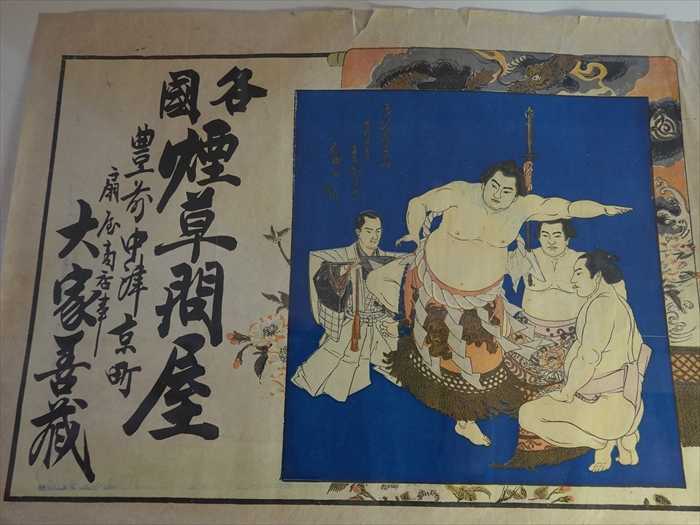 各國
煙草問屋
豊前中津京町
扇屋商店事
大家吾藏